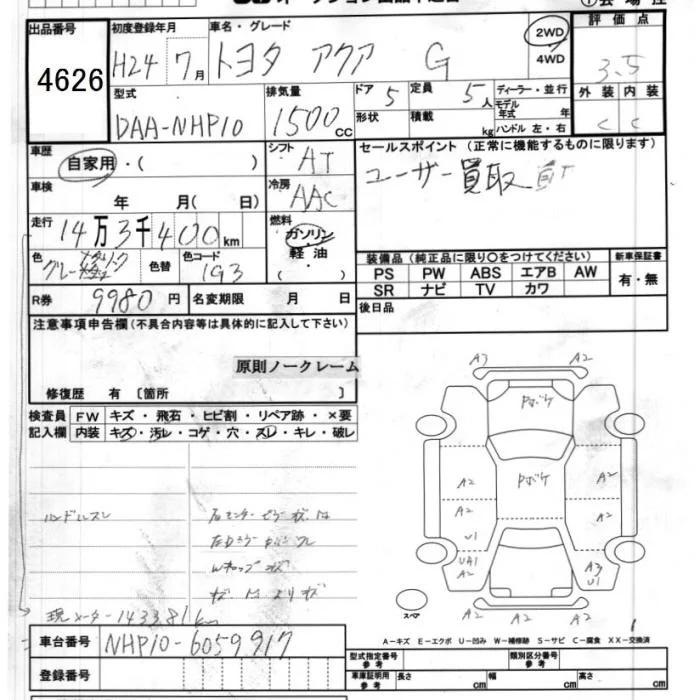 出品番号
4626
初度登録年月
H24 7月
車名・グレード
トヨタ アクア G
2WD
4WD
評価点
3.5
型式
DAA-NHP10
排気量
1500cc
ドア 5
形状
定員 5人
積載 kg
ディーラー・並行
モデル年式 年
ハンドル 左・右
外装 内装
C C
車歴
自家用・( )
シフト
AT
セールスポイント (正常に機能するものに限ります)
ユーザー買取
車検
年 月( 日)
冷房
AAC
走行
14万3千400km
燃料
ガソリン
軽油
( )
色
グレー
色替
色コード
1G3
装備品 (純正品に限り○をつけてください)
新車保証書
PS PW ABS エアB AW
有・無
SR ナビ TV カワ
R券 9980円
名変期限 月 日
後日品
注意事項申告欄 (不具合内容等は具体的に記入して下さい)
原則ノークレーム
修復歴 有 〔箇所 〕
検査員記入欄
FW キズ・飛石・ヒビ割・リペア跡・×要
内装 キズ・汚レ・コゲ・穴・スレ・キレ・破レ
ハンドルスレ
現メーター143381km
A3 A2
Pボケ
Pボケ
A2 A2
A2 A2
U1
UA1
A2
A3
U1
A2 A2
スペア
A-キズ E-エクボ U-凹み W-補修跡 S-サビ C-腐食 XX-交換済
車台番号
NHP10-6059917
登録番号
型式指定番号 参考
類別区分番号 参考
車庫証明用 参考
長さ cm 幅 cm 高さ cm